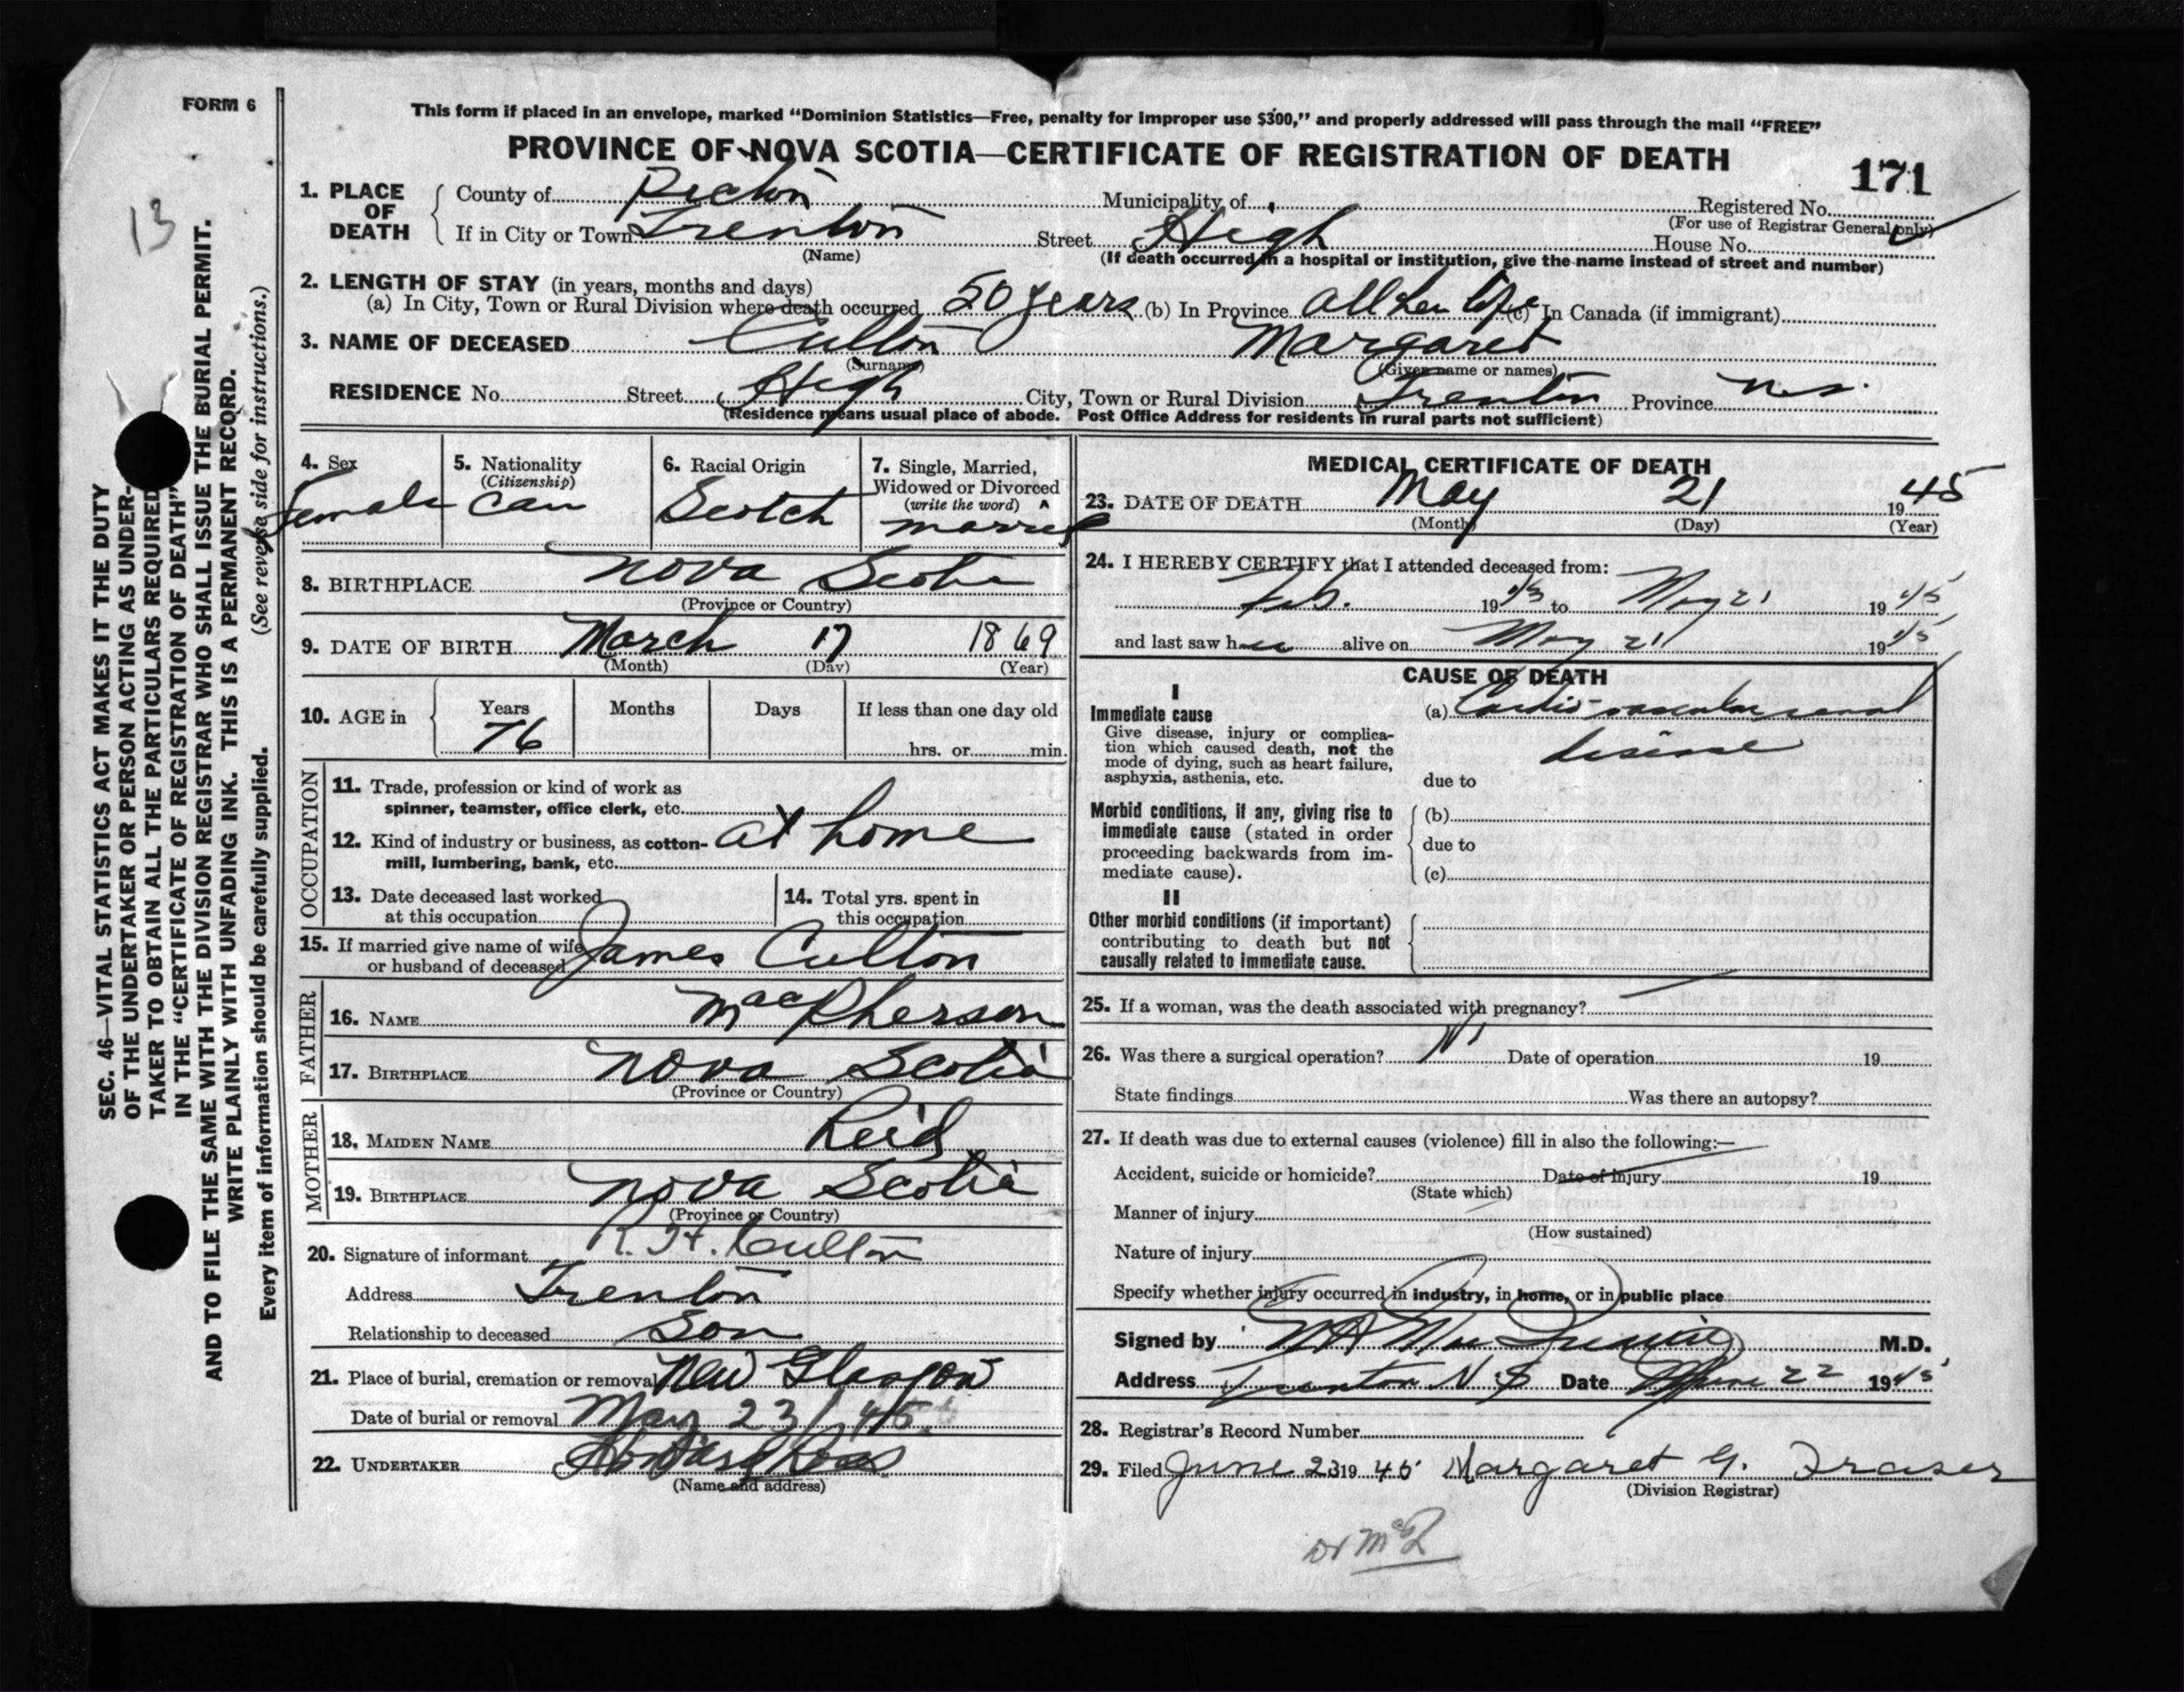 FORM 6
This form if placed in an envelope, marked “Dominion Statistics—Free, penalty for improper use $300,” and properly addressed will pass through the mail “FREE”
PROVINCE OF NOVA SCOTIA—CERTIFICATE OF REGISTRATION OF DEATH
171
13
SEC. 46—VITAL STATISTICS ACT MAKES IT THE DUTY
OF THE UNDERTAKER OR PERSON ACTING AS UNDER-
TAKER TO OBTAIN ALL THE PARTICULARS REQUIRED
IN THE “CERTIFICATE OF REGISTRATION OF DEATH”
AND TO FILE THE SAME WITH THE DIVISION REGISTRAR WHO SHALL ISSUE THE BURIAL PERMIT.
WRITE PLAINLY WITH UNFADING INK. THIS IS A PERMANENT RECORD.
Every item of information should be carefully supplied. (See reverse side for instructions.)
1. PLACE OF DEATH
County of Pictou Municipality of Registered No.
(For use of Registrar General only)
If in City or Town Trenton Street High House No.
(Name) (If death occurred in a hospital or institution, give the name instead of street and number)
2. LENGTH OF STAY (in years, months and days)
(a) In City, Town or Rural Division where death occurred 50 years (b) In Province all her life (c) In Canada (if immigrant)
3. NAME OF DECEASED Culton Margaret
(Surname) (Given name or names)
RESIDENCE No. Street High City, Town or Rural Division Trenton Province N.S.
(Residence means usual place of abode. Post Office Address for residents in rural parts not sufficient)
4. Sex
female
5. Nationality
(Citizenship)
Can
6. Racial Origin
Scotch
7. Single, Married,
Widowed or Divorced
(write the word)
married
8. BIRTHPLACE Nova Scotia
(Province or Country)
9. DATE OF BIRTH March 17 1869
(Month) (Day) (Year)
10. AGE in
Years Months Days If less than one day old
76 hrs. or min.
OCCUPATION
11. Trade, profession or kind of work as
spinner, teamster, office clerk, etc.
12. Kind of industry or business, as cotton-
mill, lumbering, bank, etc.
at home
13. Date deceased last worked
at this occupation
14. Total yrs. spent in
this occupation
15. If married give name of wife
or husband of deceased James Culton
FATHER
16. NAME MacPherson
17. BIRTHPLACE Nova Scotia
(Province or Country)
MOTHER
18. MAIDEN NAME Reid
19. BIRTHPLACE Nova Scotia
(Province or Country)
20. Signature of informant R. H. Culton
Address Trenton
Relationship to deceased Son
21. Place of burial, cremation or removal New Glasgow
Date of burial or removal May 23/45
22. UNDERTAKER
(Name and address)
MEDICAL CERTIFICATE OF DEATH
23. DATE OF DEATH May 21 1945
(Month) (Day) (Year)
24. I HEREBY CERTIFY that I attended deceased from:
Feb. 1943 to May 21 1945
and last saw her alive on May 21 1945
CAUSE OF DEATH
I
Immediate cause
Give disease, injury or complica-
tion which caused death, not the
mode of dying, such as heart failure,
asphyxia, asthenia, etc.
(a) Cardio-vascular renal
disease
due to
Morbid conditions, if any, giving rise to
immediate cause (stated in order
proceeding backwards from im-
mediate cause).
(b)
due to
(c)
II
Other morbid conditions (if important)
contributing to death but not
causally related to immediate cause.
25. If a woman, was the death associated with pregnancy?
26. Was there a surgical operation? No Date of operation 19
State findings Was there an autopsy?
27. If death was due to external causes (violence) fill in also the following:—
Accident, suicide or homicide? Date of injury 19
(State which)
Manner of injury
(How sustained)
Nature of injury
Specify whether injury occurred in industry, in home, or in public place
Signed by M.D.
Address Trenton N.S Date June 22 1945
28. Registrar's Record Number
29. Filed June 23 1945 Margaret G. Fraser
(Division Registrar)
Dr McQ